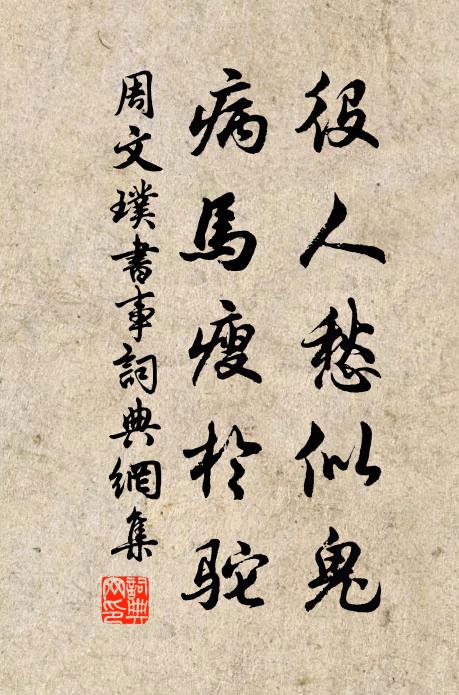 役人愁似鬼
病馬瘦於駝
周文璞書事詞典網集
詞典网印